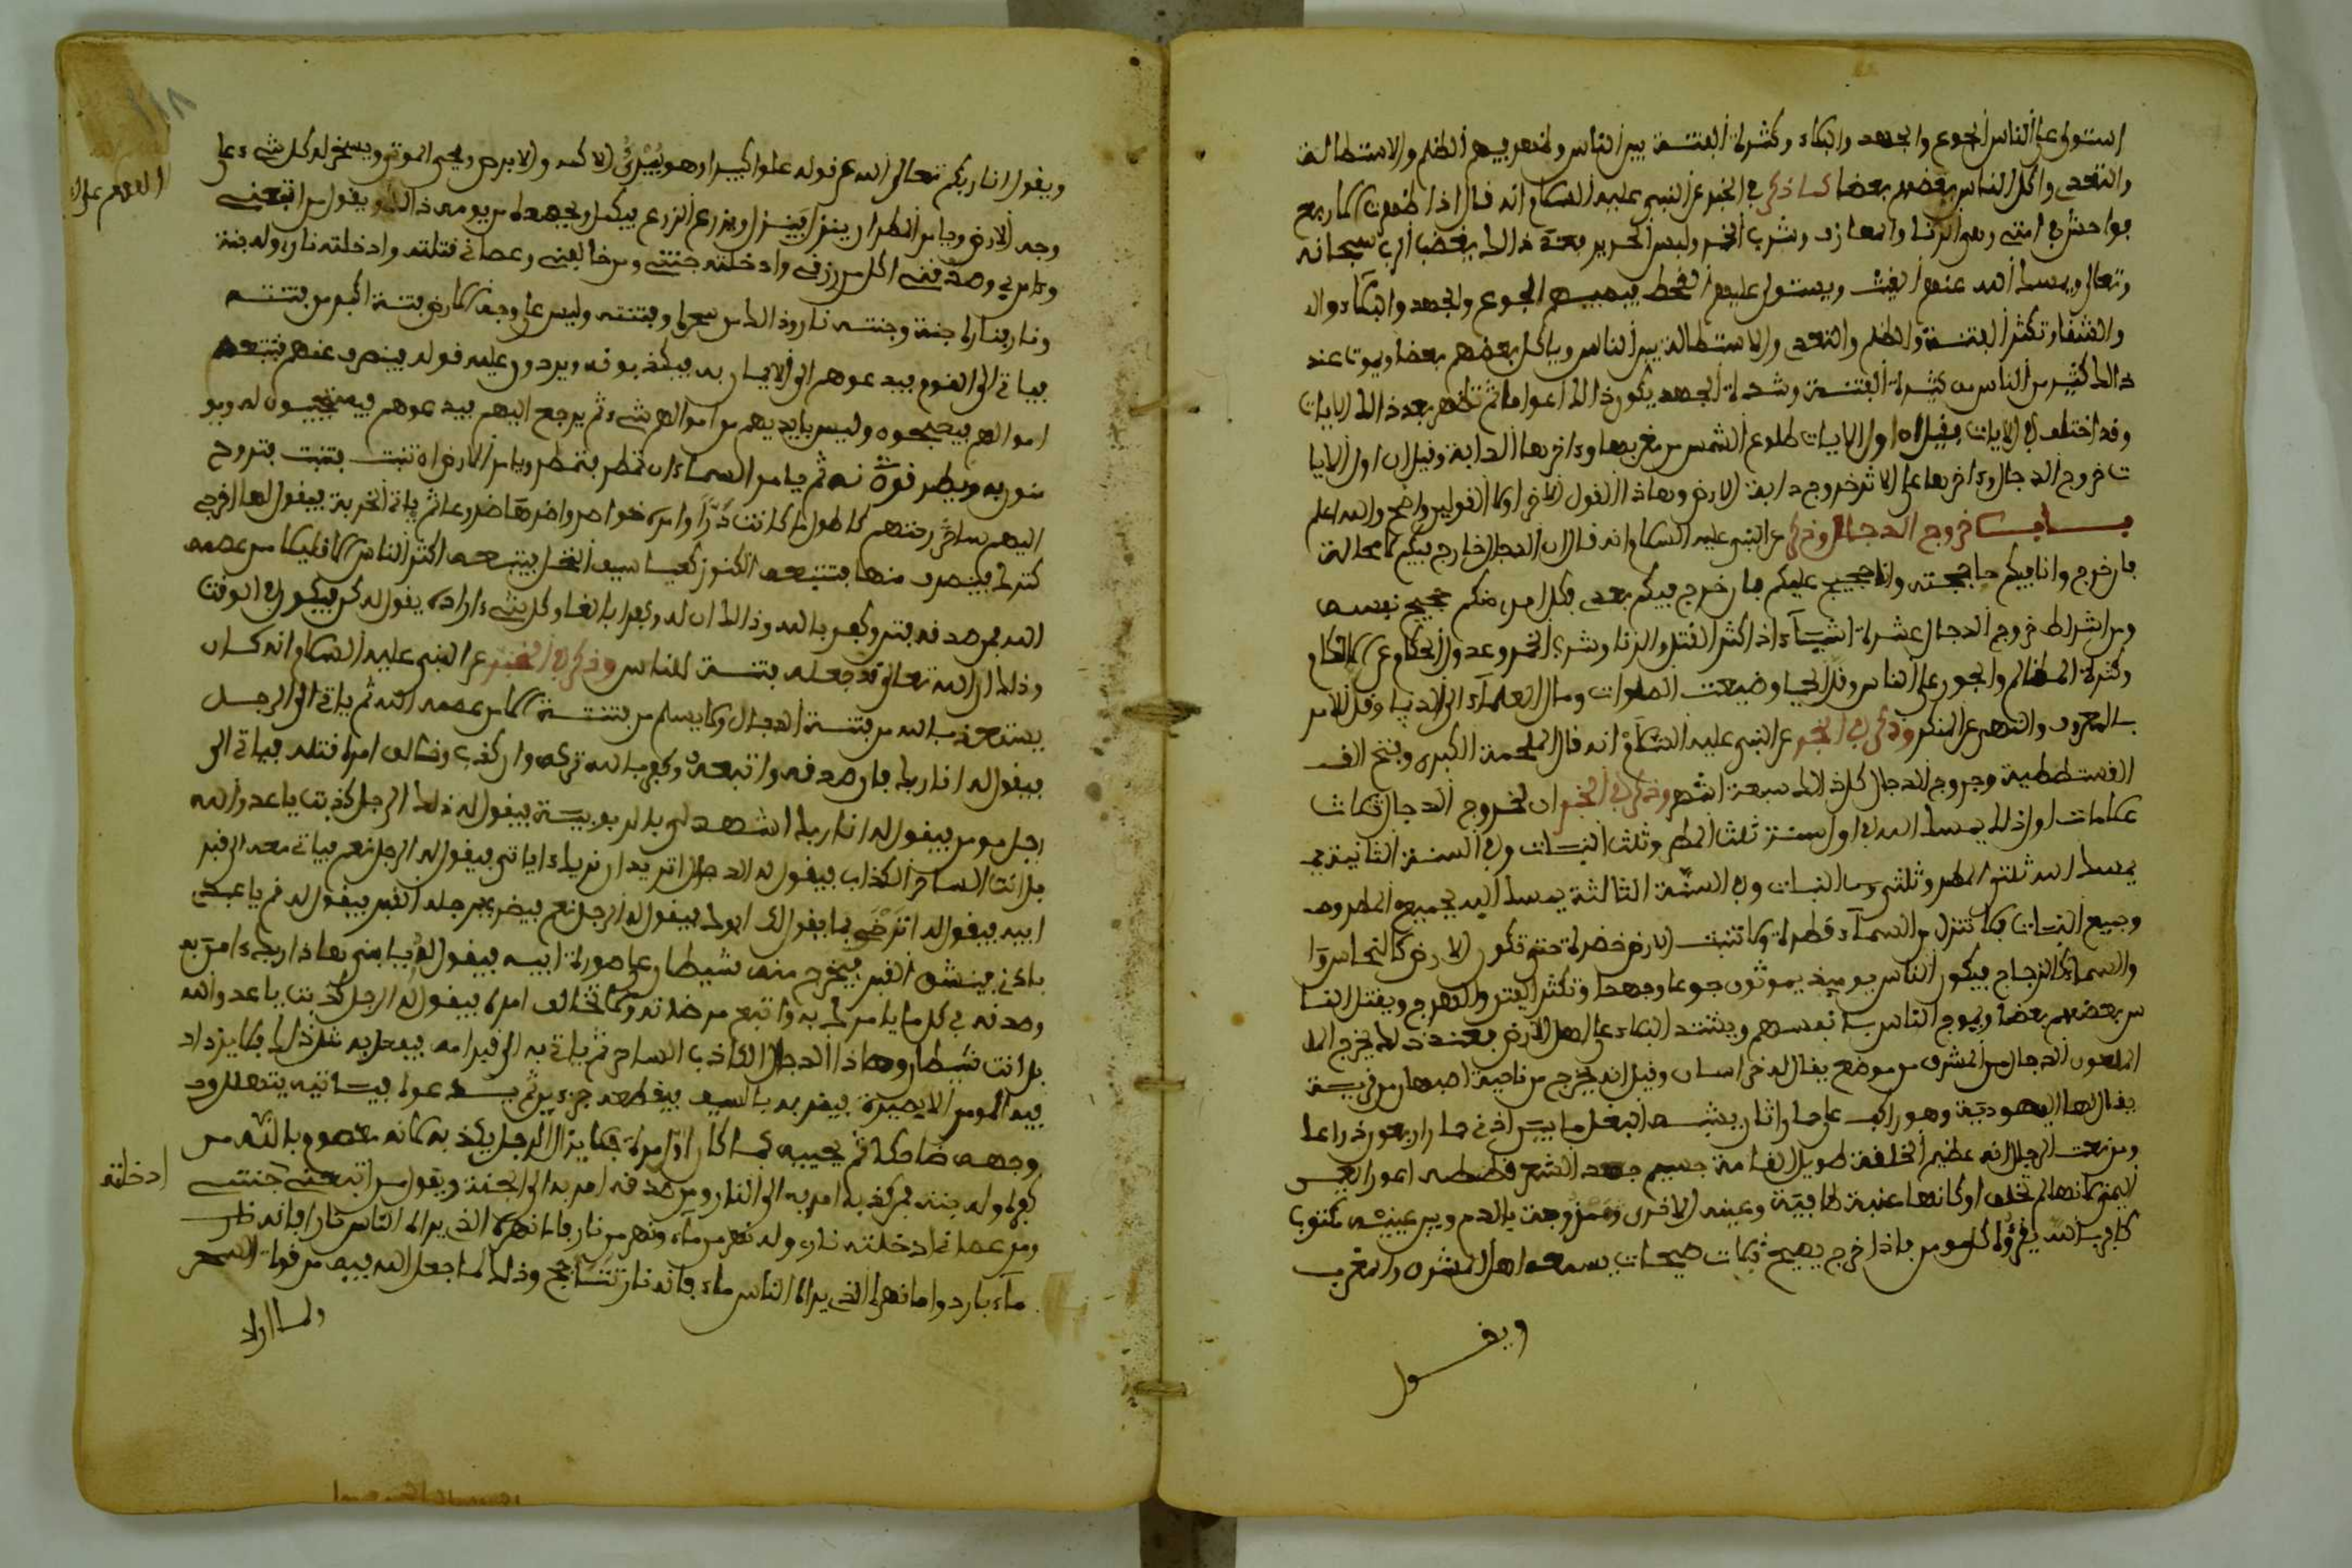 استولى على الناس الجوع والجهد والبكاء وكثرة الفتنة بين الناس وظهر فيهم الظلم والاستطالة
والتعدي واكل الناس بعضهم بعضا كما ذكر في الخبر عن النبي عليه السلام انه قال اذا ظهرت اربع
فواحش في امتي وهي الزنا والمعازف وشرب الخمر ولبس الحرير فعند ذالك يغضب الرب سبحانه
وتعالى ويمسك الله عنهم الغيث ويستولي عليهم القحط فيصيبهم الجوع والجهد والبكاء وال
والشقا وتكثر الفتنة والظلم والتعدي والاستطالة بين الناس وياكل بعضهم بعضا ويموت عند
ذالك كثير من الناس من كثرة الفتنة وشدة الجهد يكون ذالك اعواما ثم تظهر بعد ذالك الايات
وقد اختلف في الايات فقيل ان اول الايات طلوع الشمس من مغربها وءاخرها الدابة وقيل ان اول الايا
ت خروج الدجال وءاخرها على الاثر خروج دابة الارض وهاذا القول الاخر اولا القولين واضح والله اعلم
باب خروج الدجال وذكر عن النبي عليه السلام انه قال ان الدجال خارج فيكم لا محالة
فان خرج وانا فيكم حاججته وانا حجيج عليكم فان خرج فيكم بعدي فكل امرئ منكم حجيج نفسه
ومن اشراط خروج الدجال عشرة اشياء اذا كثر القتل والزنا وشرب الخمر وعدول الحكام عن الاحكام
وكثرة المظالم والجور على الناس وقل الحيا وضيعت الصلوات ومال العلماء الى الدنيا وقل الامر
بالمعروف والنهي عن المنكر وذكر في الخبر عن النبي عليه السلام انه قال الملحمة الكبرى وفتح الق
القسطنطينية وخروج الدجال كل ذالك سبعة اشهر وذكر في الخبر ان لخروج الدجال ثلاث
علامات اول ذلك يمسك الله في اول سنة ثلث المطر وثلث النبات وفي السنة الثانية يمـ
يمسك الله ثلثي المطر وثلثي النبات وفي السنة الثالثة يمسك الله جميع المطر وجـ
وجميع النبات فلا تنزل من السماء قطرة ولا تنبت الارض خضرة حتى تكون الارض كالنحاس وا
والسماء كالزجاج فيكون الناس يوميذ يموتون جوعا وجهدا وتكثر الفتن والهرج ويقتل النا
س بعضهم بعضا ويموج الناس بانفسهم ويشتد البلاء على اهل الارض فعند ذلك يخرج الل
الملعون الدجال من المشرق من موضع يقال له خراسان وقيل انه يخرج من ناحية اصبهان من قرية
يقال لها اليهودية وهو راكب على حمار اتان يشبه البغل ما بين اذني حماره اربعون ذراعا
ومن نعت الدجال انه عظيم الخلقة طويل القامة جسيم جعد الشعر قطط اعور العين
اليمنى كانها لم تخلق او كانها عنبة طافية وعينه الاخرى ممزوجة بالدم وبين عينيه مكتوب
كافر بالله يقرؤه كل مومن فاذا خرج يصيح ثلاث صيحات يسمعه اهل المشرق والمغرب
ويقـــول
١١٨
ويقول انا ربكم تعالى الله عن قوله علوا كبيرا وهو يبرئ الاكمه والابرص ويحيي الموتى ويسخر له كل شيء على
وجه الارض ويامر المطر ان ينزل فينزل ويزرع الزرع فيكمل ويحصد من يومه ذالك ويقول من اتبعني
وءامن بي وصدقني اكل من رزقي وادخلته جنتي ومن خالفني وعصاني قتلته وادخلته ناري وله جنة
ونار فناره جنة وجنته نار وذالك من سحره وفتنته وليس على وجه الارض فتنة اكبر من فتنته
فياتي الى القوم فيدعوهم الى الايمان به فيكذبوه ويردون عليه قوله فينصرف عنهم فتتبعه
اموالهم فيصبحون وليس بايديهم من اموالهم شيء ثم يرجع اليهم فيدعوهم فيستجيبون له ويو
منون به ثم يامر السماء ان تمطر فتمطر ويامر الارض ان تنبت فتنبت فتروح
اليهم سارحتهم كاطول ما كانت درا وامده خواصر واضرعا ثم ياتي الخربة فيقول لها اخرجي
كنزك فينصرف منها فتتبعه الكنوز كيعاسيب النحل فيتبعه اكثر الناس الا قليلا من عصمه
الله فمن صدقه فتن وكفر بالله وذالك ان له وكل شيء اراده يقول له كن فيكون في الوقت
وذلك ان الله تعالى قد جعله فتنة للناس وذكر في الخبر عن النبي عليه السلام انه كان
يستعيذ بالله من فتنة الدجال ولا يسلم من فتنته الا من عصمه الله ثم ياتي الى الرجل
فيقول له انا ربك فان صدقه واتبعه وكفر بالله تركه وان كذبه وخالف امره قتله فياتي الى
رجل مومن فيقول له انا ربك اشهد لي بالربوبية فيقول له ذلك الرجل كذبت يا عدو الله
بل انت الساحر الكذاب فيقول له الدجال اتريد ان نريك اياتي فيقول له الرجل نعم فياتي معه الى قبر
ابيه فيقول له اترضى بما يقول لك ابوك فيقول له الرجل نعم فيضرب برجله القبر فيقول له قم يا عبدي
باذني فينشق القبر فيخرج منه شيطان على صورة ابيه فيقول له يا بني هاذا ربك ءامن به
وصدقه في كل ما يامرك به واتبع مرضاته ولا تخالف امره فيقول له الرجل كذبت يا عدو الله
بل انت شيطان وهاذا الدجال الكاذب الساحر ثم ياتي به الى قبر امه فيفعل به مثل ذلك فلا يزداد
فيه المومن الا بصيرة فيضربه بالسيف فيقطعه جزءين ثم يدعوه فياتيه يتهلل وجـ
وجهه ضاحكا ثم يحييه كما كان اول مرة فلا يزال الرجل يكذبه لانه معصوم بالله من
كفره وله جنة فمن كذبه امر به الى النار ومن صدقه امر به الى الجنة ويقول من اتبعني جنتي
ومن عصاني ادخلته ناري وله نهر من ماء ونهر من نار فاما نهره الذي يراه الناس نارا فانه
ماء بارد واما نهره الذي يراه الناس ماء فانه نار تتاجج وذلك لما جعل الله فيه من قوة السحر
ادخلته